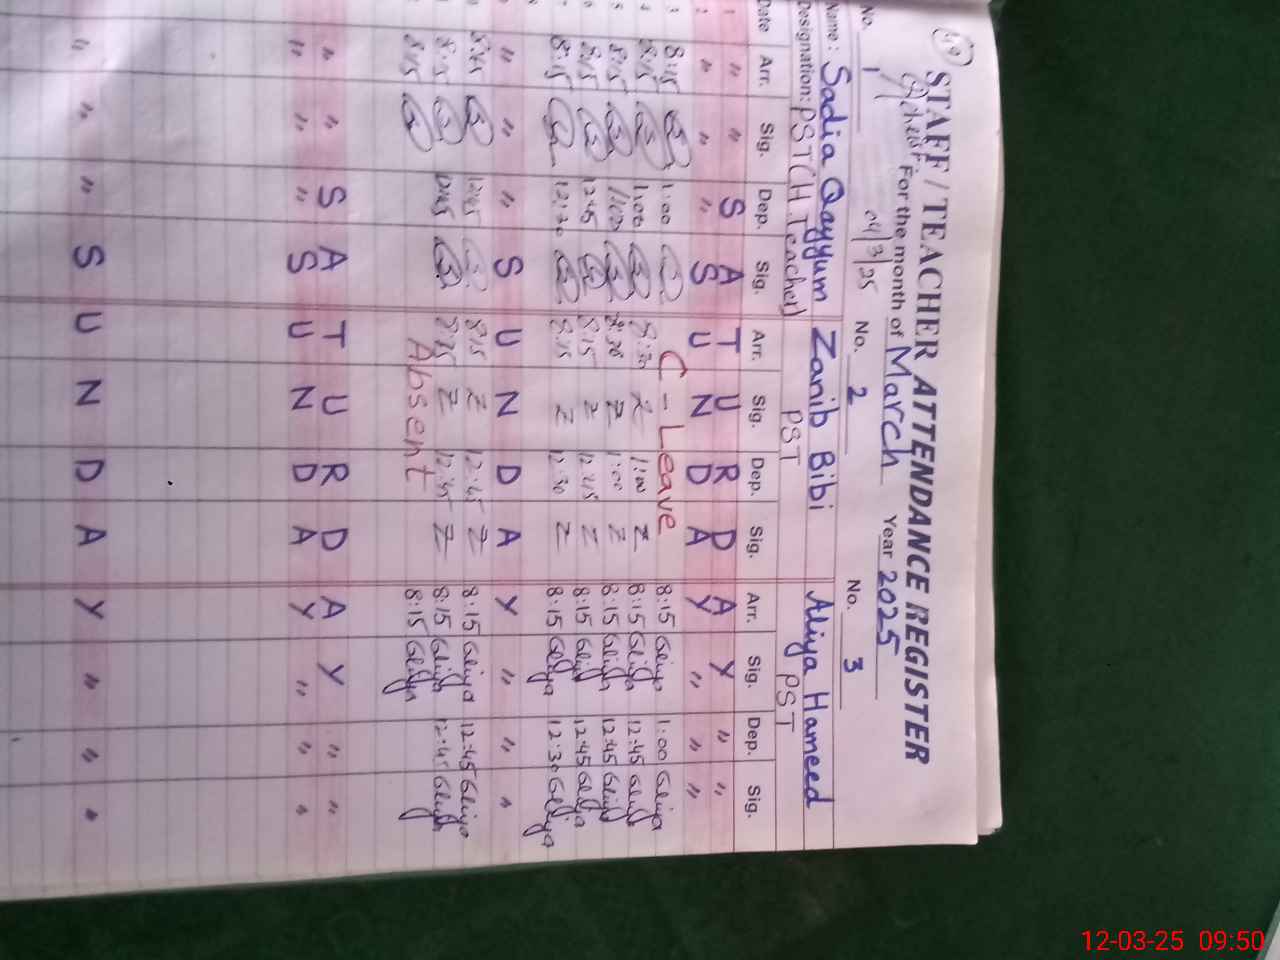 STAFF / TEACHER ATTENDANCE REGISTER
For the month of March Year 2025
04/3/25
No. 1 No. 2 No. 3
Name: Sadia Qayyum Zanib Bibi Aliya Hameed
Designation: PST (H.Teacher) PST PST
Date Arr. Sig. Dep. Sig. Arr. Sig. Dep. Sig. Arr. Sig. Dep. Sig.
1 " " S A T U R D A Y " "
2 " " " S U N D A Y " " "
3 8:15 1:00 C - Leave 8:15 Aliya 1:00 Aliya
8:15 1:00 8:30 Z 1:00 Z 8:15 Aliya 12:45 Aliya
8:15 1:00 8:30 Z 1:00 Z 8:15 Aliya 12:45 Aliya
8:15 12:45 8:15 Z 12:45 Z 8:15 Aliya 12:45 Aliya
8:15 12:30 8:15 Z 12:30 Z 8:15 Aliya 12:30 Aliya
" " " S U N D A Y " " "
8:45 12:45 8:15 Z 12:45 Z 8:15 Aliya 12:45 Aliya
8:15 12:45 8:15 Z 12:45 Z 8:15 Aliya 12:45 Aliya
8:15 Absent 8:15 Aliya
" " S A T U R D A Y " "
" " " S U N D A Y " " "
" " " S U N D A Y " " "
12-03-25 09:50